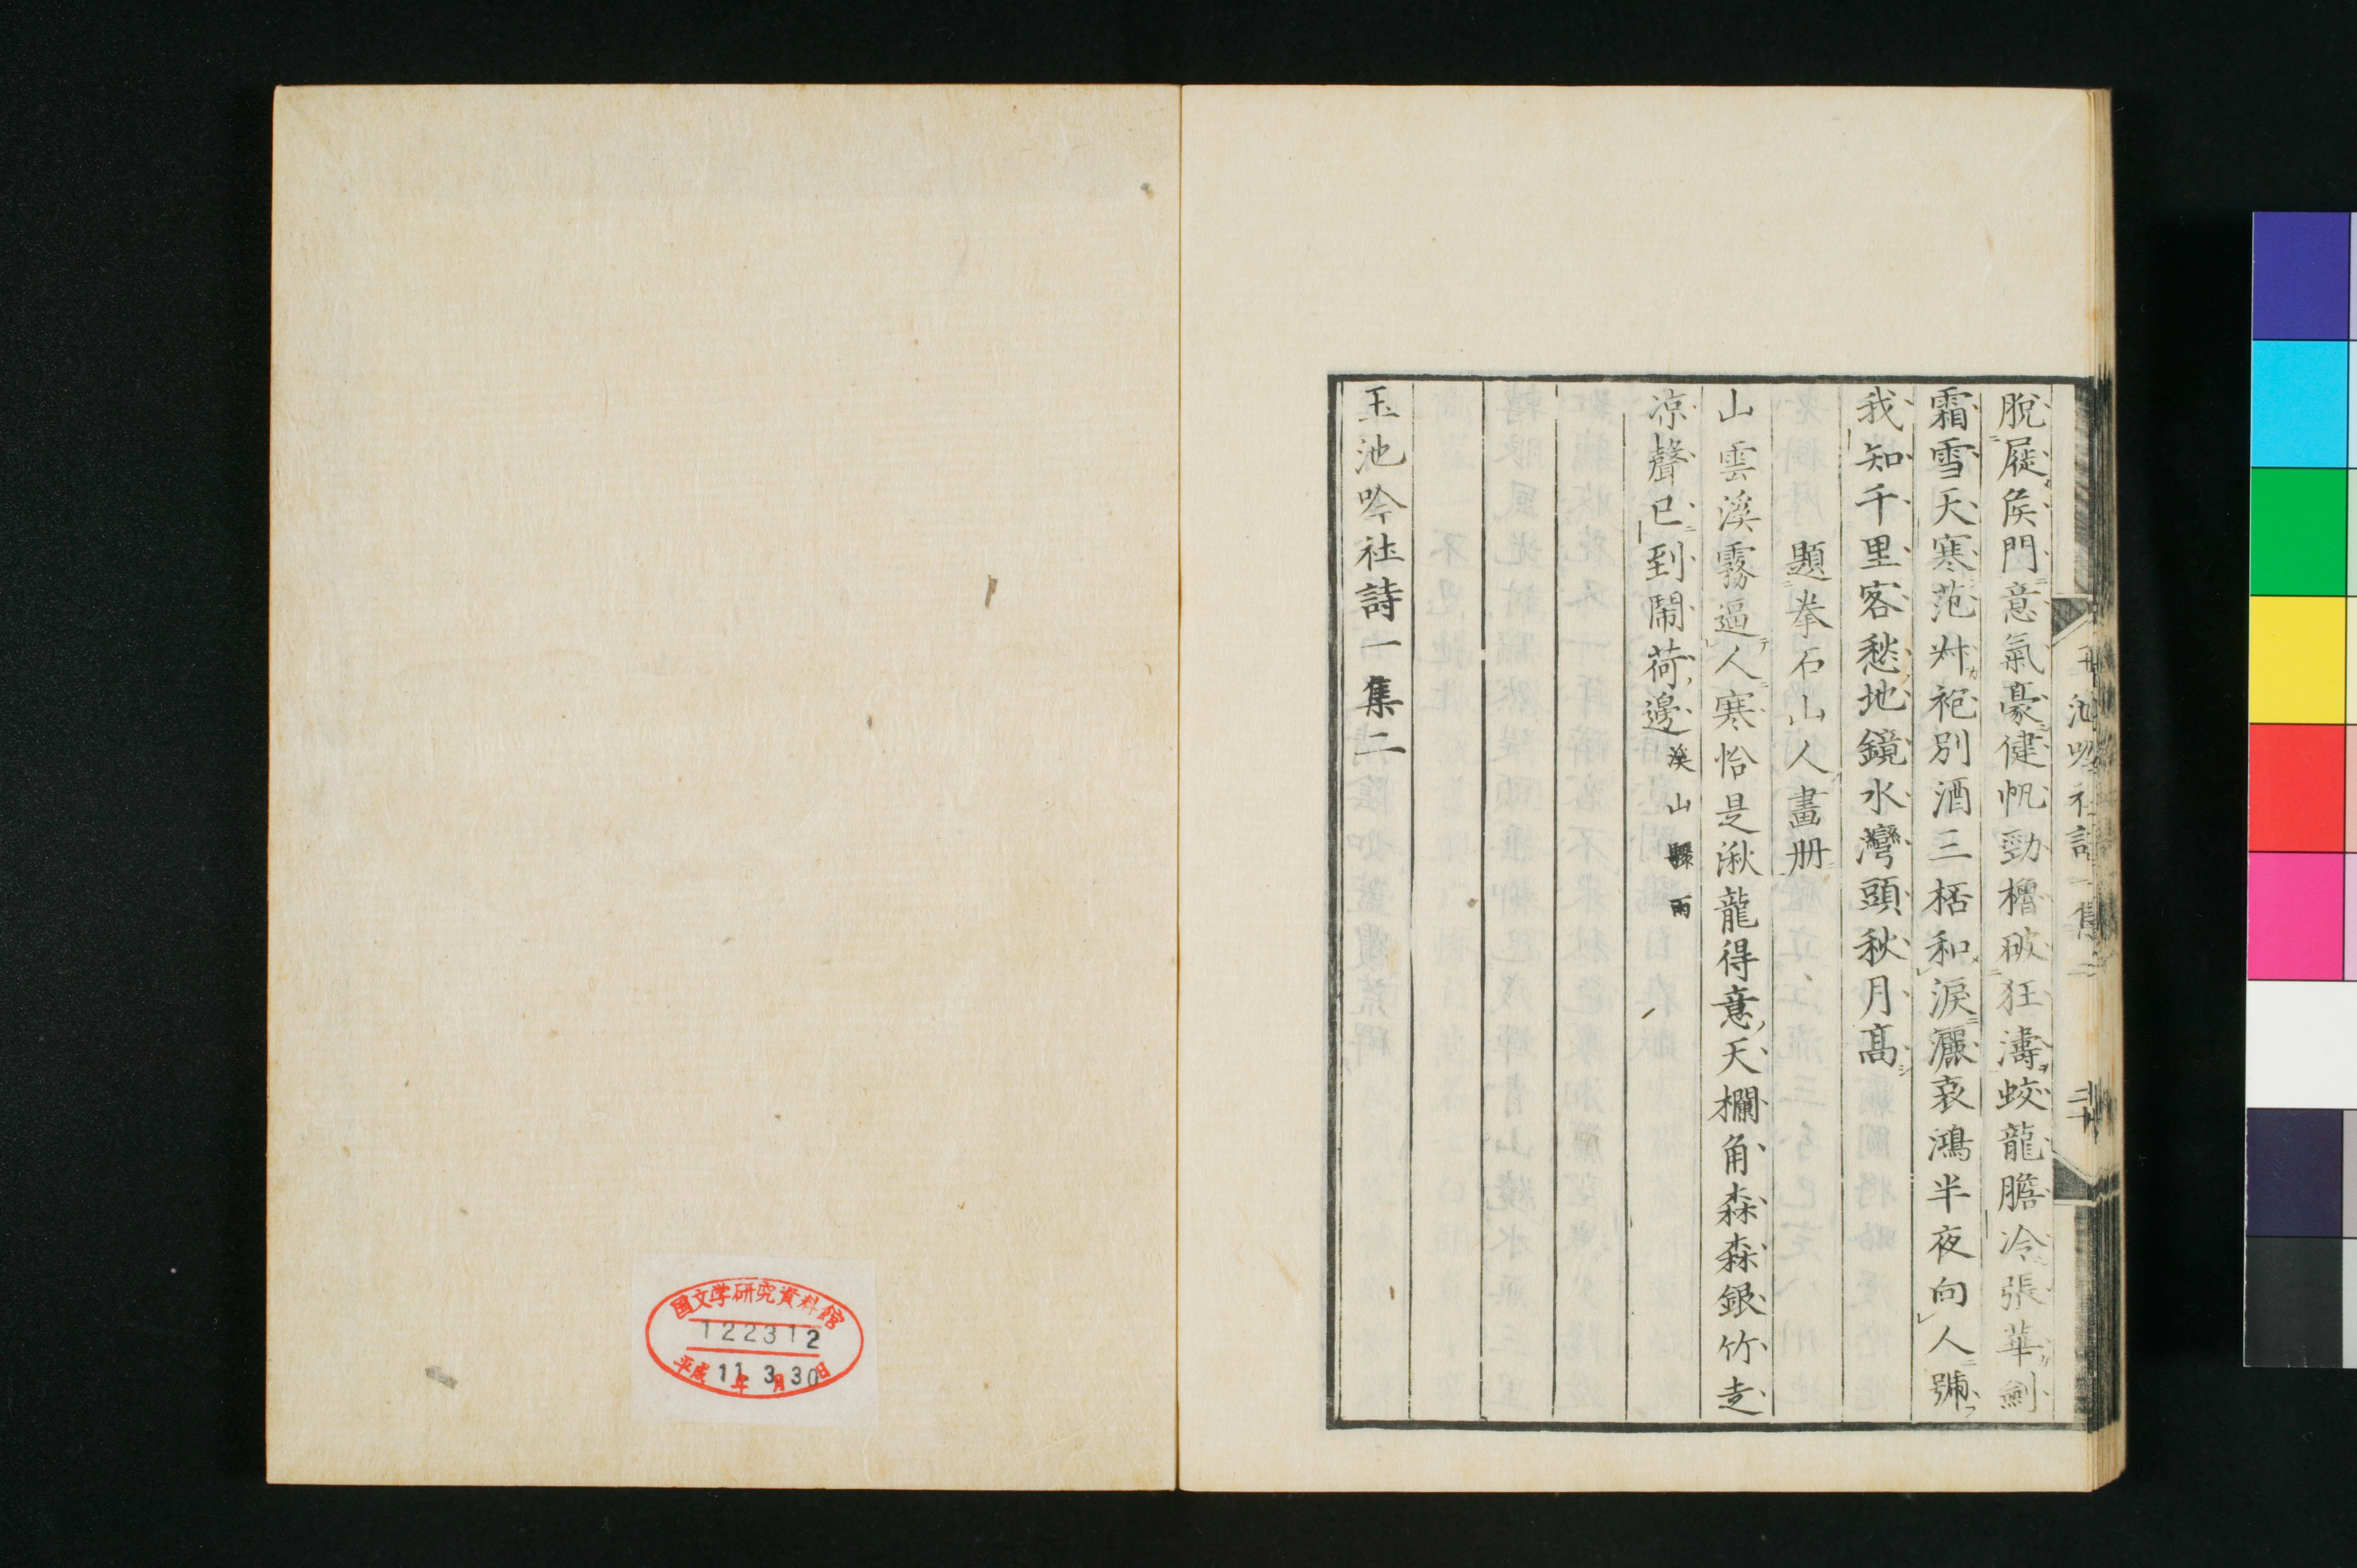 脫屣侯門意氣豪健帆勁櫓破狂濤蛟龍膽冷張華劍
霜雪天寒范叔袍別酒三桮和淚灑哀鴻半夜向人號
我知千里客愁地鏡水灣頭秋月高
題拳石山人畫册
山雲溪霧逼人寒恰是湫龍得意天欄角森森銀竹走
涼聲已到鬧荷邊溪山驟雨
玉池吟社詩一集二
玉池吟社詩一集二
二十
国文学研究資料館
122312
平成11年3月30日